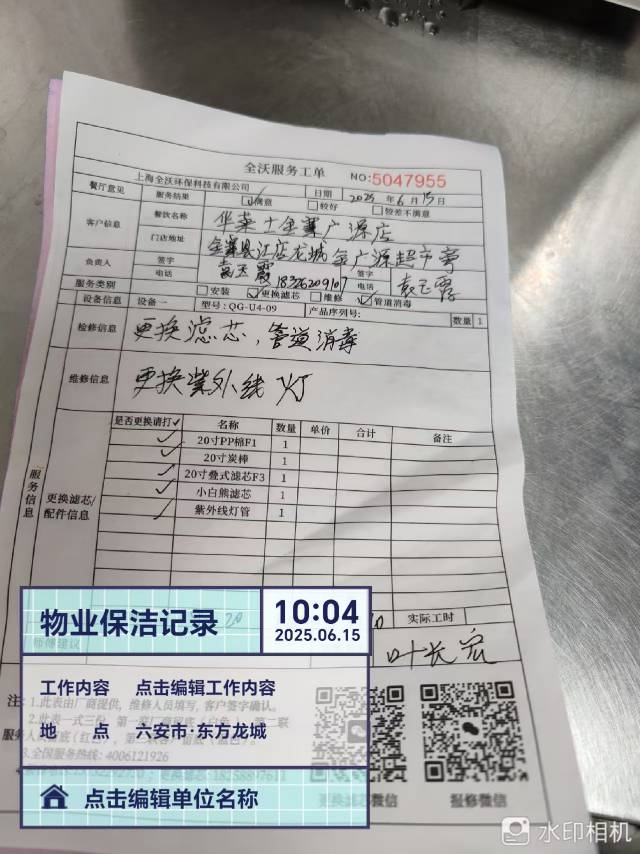 全沃服务工单
NO:5047955
上海全沃环保科技有限公司
日期 2025年6月15日
餐厅意见 服务结果 ☑满意 □较好 □较差不满意
客户信息 餐饮名称 华莱士金寨广源店
门店地址 金寨县江店龙城金广源超市旁
负责人 签字 签字
电话 18326209107 电话
服务类别 □安装 ☑更换滤芯 □维修 ☑管道消毒
设备信息 设备一 型号: QG-U4-09 产品序列号: 数量 1
检修信息 更换滤芯,管道消毒
维修信息 更换紫外线灯
服务信息
更换滤芯/配件信息
是否更换请打✓ 名称 数量 单价 合计 备注
✓ 20寸PP棉F1 1
✓ 20寸炭棒 1
✓ 20寸叠式滤芯F3 1
✓ 小白熊滤芯 1
✓ 紫外线灯管 1
实际工时
叶长宏
物业保洁记录
10:04
2025.06.15
工作内容 点击编辑工作内容
地点 六安市·东方龙城
点击编辑单位名称
注:
1.此表由厂商提供,维修人员填写,客户签字确认。
3.全国服务热线: 4006121926
更换滤芯微信 报修微信
水印相机